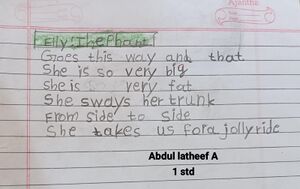 Ajanta
Elly! The Phant
Goes this way and that
She is so very big
she is very fat
She sways her trunk
From side to side
She takes us for a jolly ride
Abdul latheef A
1 std